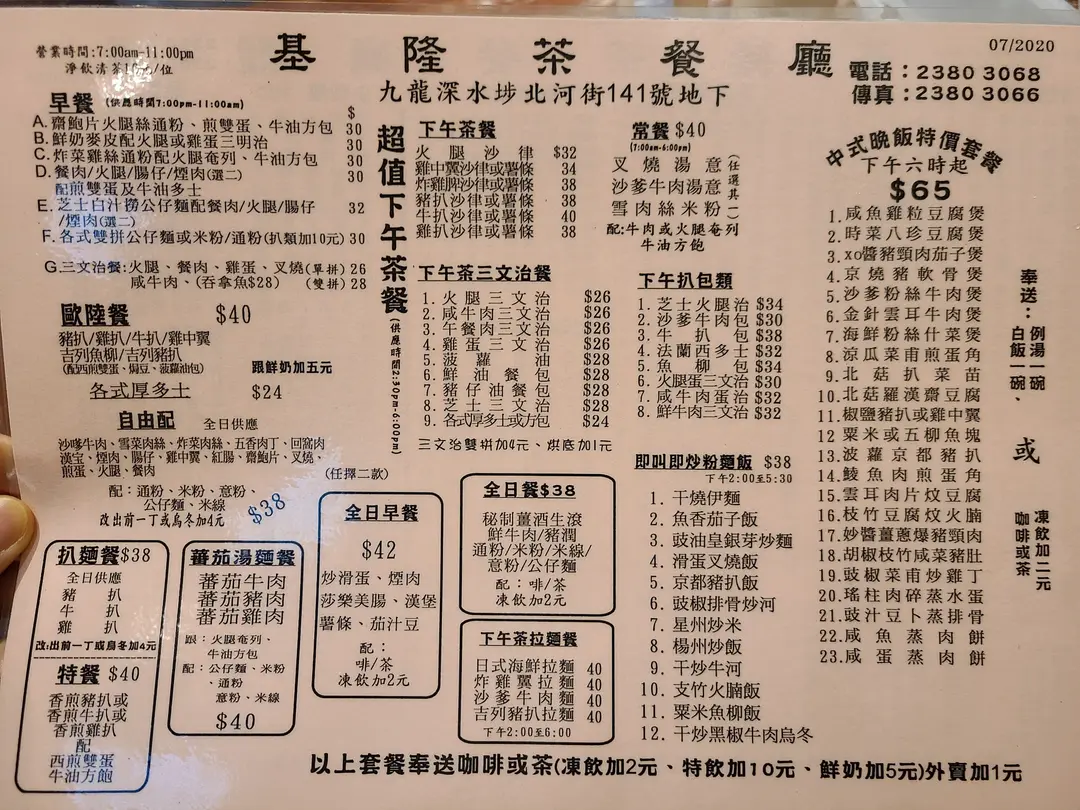 營業時間:7:00am-11:00pm
淨飲清茶 /位
基隆茶餐廳
07/2020
電話：2380 3068
傳真：2380 3066
九龍深水埗北河街141號地下
早餐 (供應時間7:00pm-11:00am)
$
A.齋鮑片火腿絲通粉、煎雙蛋、牛油方包 30
B.鮮奶麥皮配火腿或雞蛋三明治 30
C.炸菜雞絲通粉配火腿奄列、牛油方包 30
D.餐肉/火腿/腸仔/煙肉(選二) 30
配煎雙蛋及牛油多士
E.芝士白汁撈公仔麵配餐肉/火腿/腸仔 32
/煙肉(選二)
F.各式雙拼公仔麵或米粉/通粉(扒類加10元) 30
G.三文治餐:火腿、餐肉、雞蛋、叉燒(單拼) 26
咸牛肉、(吞拿魚$28) (雙拼) 28
歐陸餐 $40
豬扒/雞扒/牛扒/雞中翼
吉列魚柳/吉列豬扒
(配西煎雙蛋、焗豆、菠蘿油包)
跟鮮奶加五元
各式厚多士 $24
自由配 全日供應
沙嗲牛肉、雪菜肉絲、炸菜肉絲、五香肉丁、回窩肉
漢宝、煙肉、腸仔、雞中翼、紅腸、齋鮑片、叉燒、
煎蛋、火腿、餐肉 (任擇二款)
配：通粉、米粉、意粉、
公仔麵、米線
改出前一丁或烏冬加4元
$38
扒麵餐$38
全日供應
豬扒
牛扒
雞扒
改:出前一丁或烏冬加4元
特餐 $40
香煎豬扒或
香煎牛扒或
香煎雞扒
配
西煎雙蛋
牛油方飽
蕃茄湯麵餐
蕃茄牛肉
蕃茄豬肉
蕃茄雞肉
跟：火腿奄列、
牛油方包
配：公仔麵、米粉
、通粉
意粉、米線
$40
超值下午茶餐
(供應時間2:30pm-6:00pm)
下午茶餐
火腿沙律 $32
雞中翼沙律或薯條 34
炸雞脾沙律或薯條 38
豬扒沙律或薯條 38
牛扒沙律或薯條 40
雞扒沙律或薯條 38
常餐 $40
(7:00am-6:00pm)
叉燒湯意
沙爹牛肉湯意
雪肉絲米粉
(任選其一)
配:牛肉或火腿奄列
牛油方飽
下午茶三文治餐
1.火腿三文治 $26
2.咸牛肉三文治 $26
3.午餐肉三文治 $26
4.雞蛋三文治 $26
5.菠蘿油 $28
6.鮮油餐包 $28
7.豬仔油餐包 $28
8.芝士三文治 $28
9.各式厚多士或方包 $24
三文治雙拼加4元、烘底加1元
下午扒包類
1.芝士火腿治 $34
2.沙爹牛肉包 $30
3.牛扒包 $38
4.法蘭西多士 $32
5.魚柳包 $34
6.火腿蛋三文治 $30
7.咸牛肉蛋治 $32
8.鮮牛肉三文治 $32
全日早餐
$42
炒滑蛋、煙肉
莎樂美腸、漢堡
薯條、茄汁豆
配：
啡/茶
凍飲加2元
全日餐$38
秘制薑酒生滾
鮮牛肉/豬潤
通粉/米粉/米線/
意粉/公仔麵
配：啡/茶
凍飲加2元
下午茶拉麵餐
日式海鮮拉麵 40
炸雞翼拉麵 40
沙爹牛肉麵 40
吉列豬扒拉麵 40
下午2:00至6:00
即叫即炒粉麵飯 $38
下午2:00至5:30
1. 干燒伊麵
2. 魚香茄子飯
3. 豉油皇銀芽炒麵
4. 滑蛋叉燒飯
5. 京都豬扒飯
6. 豉椒排骨炒河
7. 星州炒米
8. 楊州炒飯
9. 干炒牛河
10. 支竹火腩飯
11. 粟米魚柳飯
12. 干炒黑椒牛肉烏冬
中式晚飯特價套餐
下午六時起
$65
1.咸魚雞粒豆腐煲
2.時菜八珍豆腐煲
3.xo醬豬頸肉茄子煲
4.京燒豬軟骨煲
5.沙爹粉絲牛肉煲
6.金針雲耳牛肉煲
7.海鮮粉絲什菜煲
8.涼瓜菜甫煎蛋角
9.北菇扒菜苗
10.北菇羅漢齋豆腐
11.椒鹽豬扒或雞中翼
12 粟米或五柳魚塊
13.波蘿京都豬扒
14.鯪魚肉煎蛋角
15.雲耳肉片炆豆腐
16.枝竹豆腐炆火腩
17.妙醬薑蔥爆豬頸肉
18.胡椒枝竹咸菜豬肚
19.豉椒菜甫炒雞丁
20.瑤柱肉碎蒸水蛋
21.豉汁豆卜蒸排骨
22.咸魚蒸肉餅
23.咸蛋蒸肉餅
奉送：例湯一碗
白飯一碗、
或
凍飲加二元
咖啡或茶
以上套餐奉送咖啡或茶(凍飲加2元、特飲加10元、鮮奶加5元)外賣加1元